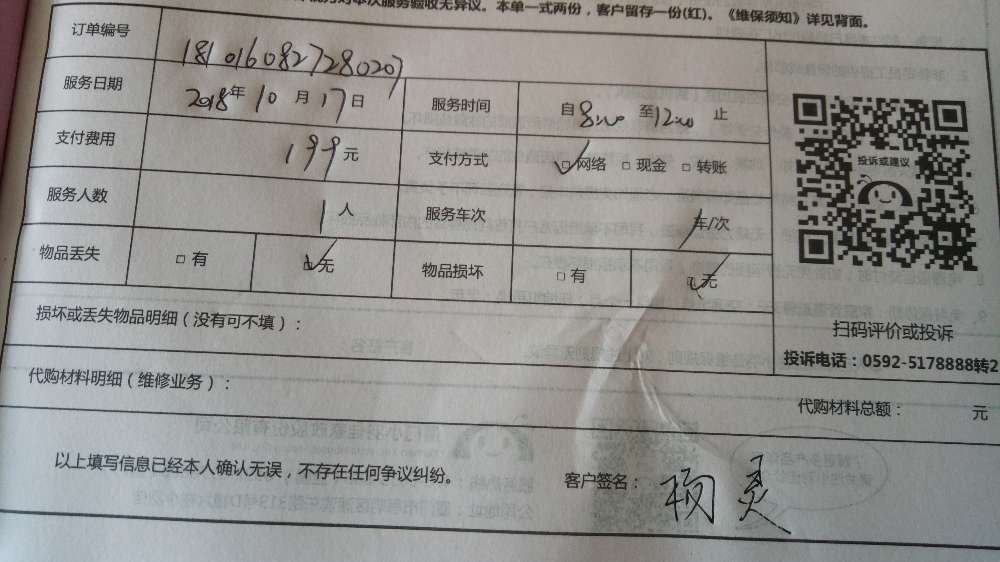 对本次服务验收无异议。本单一式两份，客户留存一份(红)。《维保须知》详见背面。
订单编号 1810160827280207
服务日期 2018年10月17日 服务时间 自8:00至12:00止
支付费用 199元 支付方式 □网络 □现金 □转账
服务人数 1人 服务车次 / 车/次
物品丢失 □有 □无 物品损坏 □有 □无
投诉或建议
扫码评价或投诉
投诉电话：0592-5178888转2
损坏或丢失物品明细（没有可不填）：
代购材料明细（维修业务）：
代购材料总额： 元
以上填写信息已经本人确认无误，不存在任何争议纠纷。
客户签名： 灵